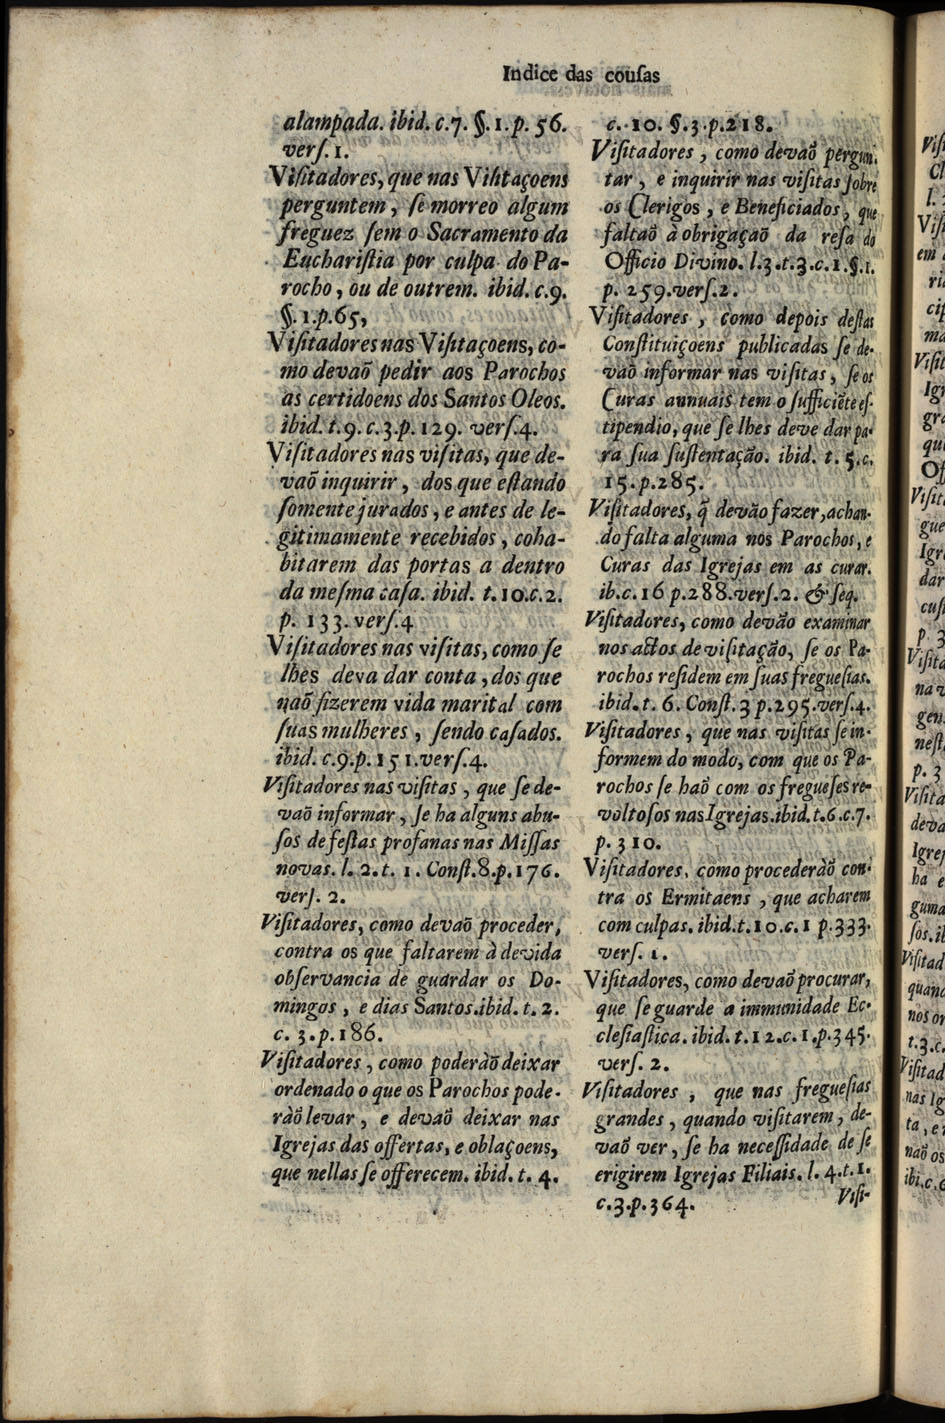 Indice das couſas
alampada. ibid. c.7. §. 1. p. 56.
verſ. 1.
Viſitadores, que nas Viſitaçoens
perguntem, ſe morreo algum
freguez ſem o Sacramento da
Euchariſtia por culpa do Pa-
rocho, ou de outrem. ibid. c.9.
§. 1. p. 65,
Viſitadores nas Viſitaçoens, co-
mo devaõ pedir aos Parochos
as certidoens dos Santos Oleos.
ibid. t. 9. c. 3. p. 129. verſ. 4.
Viſitadores nas viſitas, que de-
vaõ inquirir, dos que eſtando
ſomente jurados, e antes de le-
gitimamente recebidos, coha-
bitarem das portas a dentro
da meſma caſa. ibid. t. 10. c. 2.
p. 133. verſ. 4
Viſitadores nas viſitas, como ſe
lhes deva dar conta, dos que
naõ fizerem vida marital com
ſuas mulheres, ſendo caſados.
ibid. c. 9. p. 151. verſ. 4.
Viſitadores nas viſitas, que ſe de-
vaõ informar, ſe ha alguns abu-
ſos de feſtas profanas nas Miſſas
novas. l. 2. t. 1. Conſt. 8. p. 176.
verſ. 2.
Viſitadores, como devaõ proceder,
contra os que faltarem à devida
obſervancia de guardar os Do-
mingos, e dias Santos. ibid. t. 2.
c. 3. p. 186.
Viſitadores, como poderàõ deixar
ordenado o que os Parochos pode-
ràõ levar, e devaõ deixar nas
Igrejas das offertas, e oblaçoens,
que nellas ſe offerecem. ibid. t. 4.
c. 10. §. 3. p. 218.
Viſitadores, como devaõ pergun-
tar, e inquirir nas viſitas ſobre
os Clerigos, e Beneficiados, que
faltaõ à obrigaçaõ da reſa do
Officio Divino. l. 3. t. 3. c. 1. §. 1.
p. 259. verſ. 2.
Viſitadores, como depois deſtas
Conſtituiçoens publicadas ſe de-
vaõ informar nas viſitas, ſe os
Curas annuais tem o ſufficiẽte eſ-
tipendio, que ſe lhes deve dar pa-
ra ſua ſuſtentação. ibid. t. 5. c.
15. p. 285.
Viſitadores, q̃ devão fazer, achan-
do falta alguma nos Parochos, e
Curas das Igrejas em as curar.
ib. c. 16 p. 288. verſ. 2. & ſeq.
Viſitadores, como devão examinar
nos actos de viſitação, ſe os Pa-
rochos reſidem em ſuas freguesias.
ibid. t. 6. Conſt. 3 p. 295. verſ. 4.
Viſitadores, que nas viſitas ſe in-
formem do modo, com que os Pa-
rochos ſe haõ com os freguesſes re-
voltoſos nas Igrejas. ibid. t. 6. c. 7.
p. 310.
Viſitadores, como procederàõ con-
tra os Ermitaens, que acharem
com culpas. ibid. t. 10. c. 1 p. 333.
verſ. 1.
Viſitadores, como devaõ procurar,
que ſe guarde a immunidade Ec-
cleſiaſtica. ibid. t. 12. c. 1. p. 345.
verſ. 2.
Viſitadores, que nas freguesias
grandes, quando viſitarem, de-
vaõ ver, ſe ha neceſſidade de ſe
erigirem Igrejas Filiais. l. 4. t. 1.
c. 3. p. 364.
Viſi-